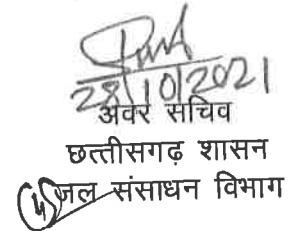 28/10/2021
अवर सचिव
छत्तीसगढ़ शासन
जल संसाधन विभाग